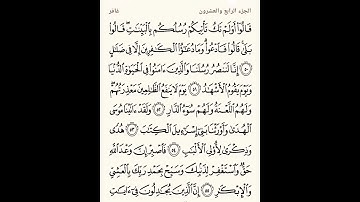 الجزء الرابع والعشرون
غافر
قَالُوٓا۟ أَوَلَمْ تَكُ تَأْتِيكُمْ رُسُلُكُم بِٱلْبَيِّنَٰتِ ۖ قَالُوا۟
بَلَىٰ ۚ قَالُوا۟ فَٱدْعُوا۟ ۗ وَمَا دُعَٰٓؤُا۟ ٱلْكَٰفِرِينَ إِلَّا فِى ضَلَٰلٍ
﴿٥٠﴾ إِنَّا لَنَنصُرُ رُسُلَنَا وَٱلَّذِينَ ءَامَنُوا۟ فِى ٱلْحَيَوٰةِ ٱلدُّنْيَا
وَيَوْمَ يَقُومُ ٱلْأَشْهَٰدُ ﴿٥١﴾ يَوْمَ لَا يَنفَعُ ٱلظَّٰلِمِينَ مَعْذِرَتُهُمْ ۖ
وَلَهُمُ ٱللَّعْنَةُ وَلَهُمْ سُوٓءُ ٱلدَّارِ ﴿٥٢﴾ وَلَقَدْ ءَاتَيْنَا مُوسَى
ٱلْهُدَىٰ وَأَوْرَثْنَا بَنِىٓ إِسْرَٰٓءِيلَ ٱلْكِتَٰبَ ﴿٥٣﴾ هُدًى
وَذِكْرَىٰ لِأُو۟لِى ٱلْأَلْبَٰبِ ﴿٥٤﴾ فَٱصْبِرْ إِنَّ وَعْدَ ٱللَّهِ
حَقٌّ وَٱسْتَغْفِرْ لِذَنۢبِكَ وَسَبِّحْ بِحَمْدِ رَبِّكَ بِٱلْعَشِىِّ
وَٱلْإِبْكَٰرِ ﴿٥٥﴾ إِنَّ ٱلَّذِينَ يُجَٰدِلُونَ فِىٓ ءَايَٰتِ